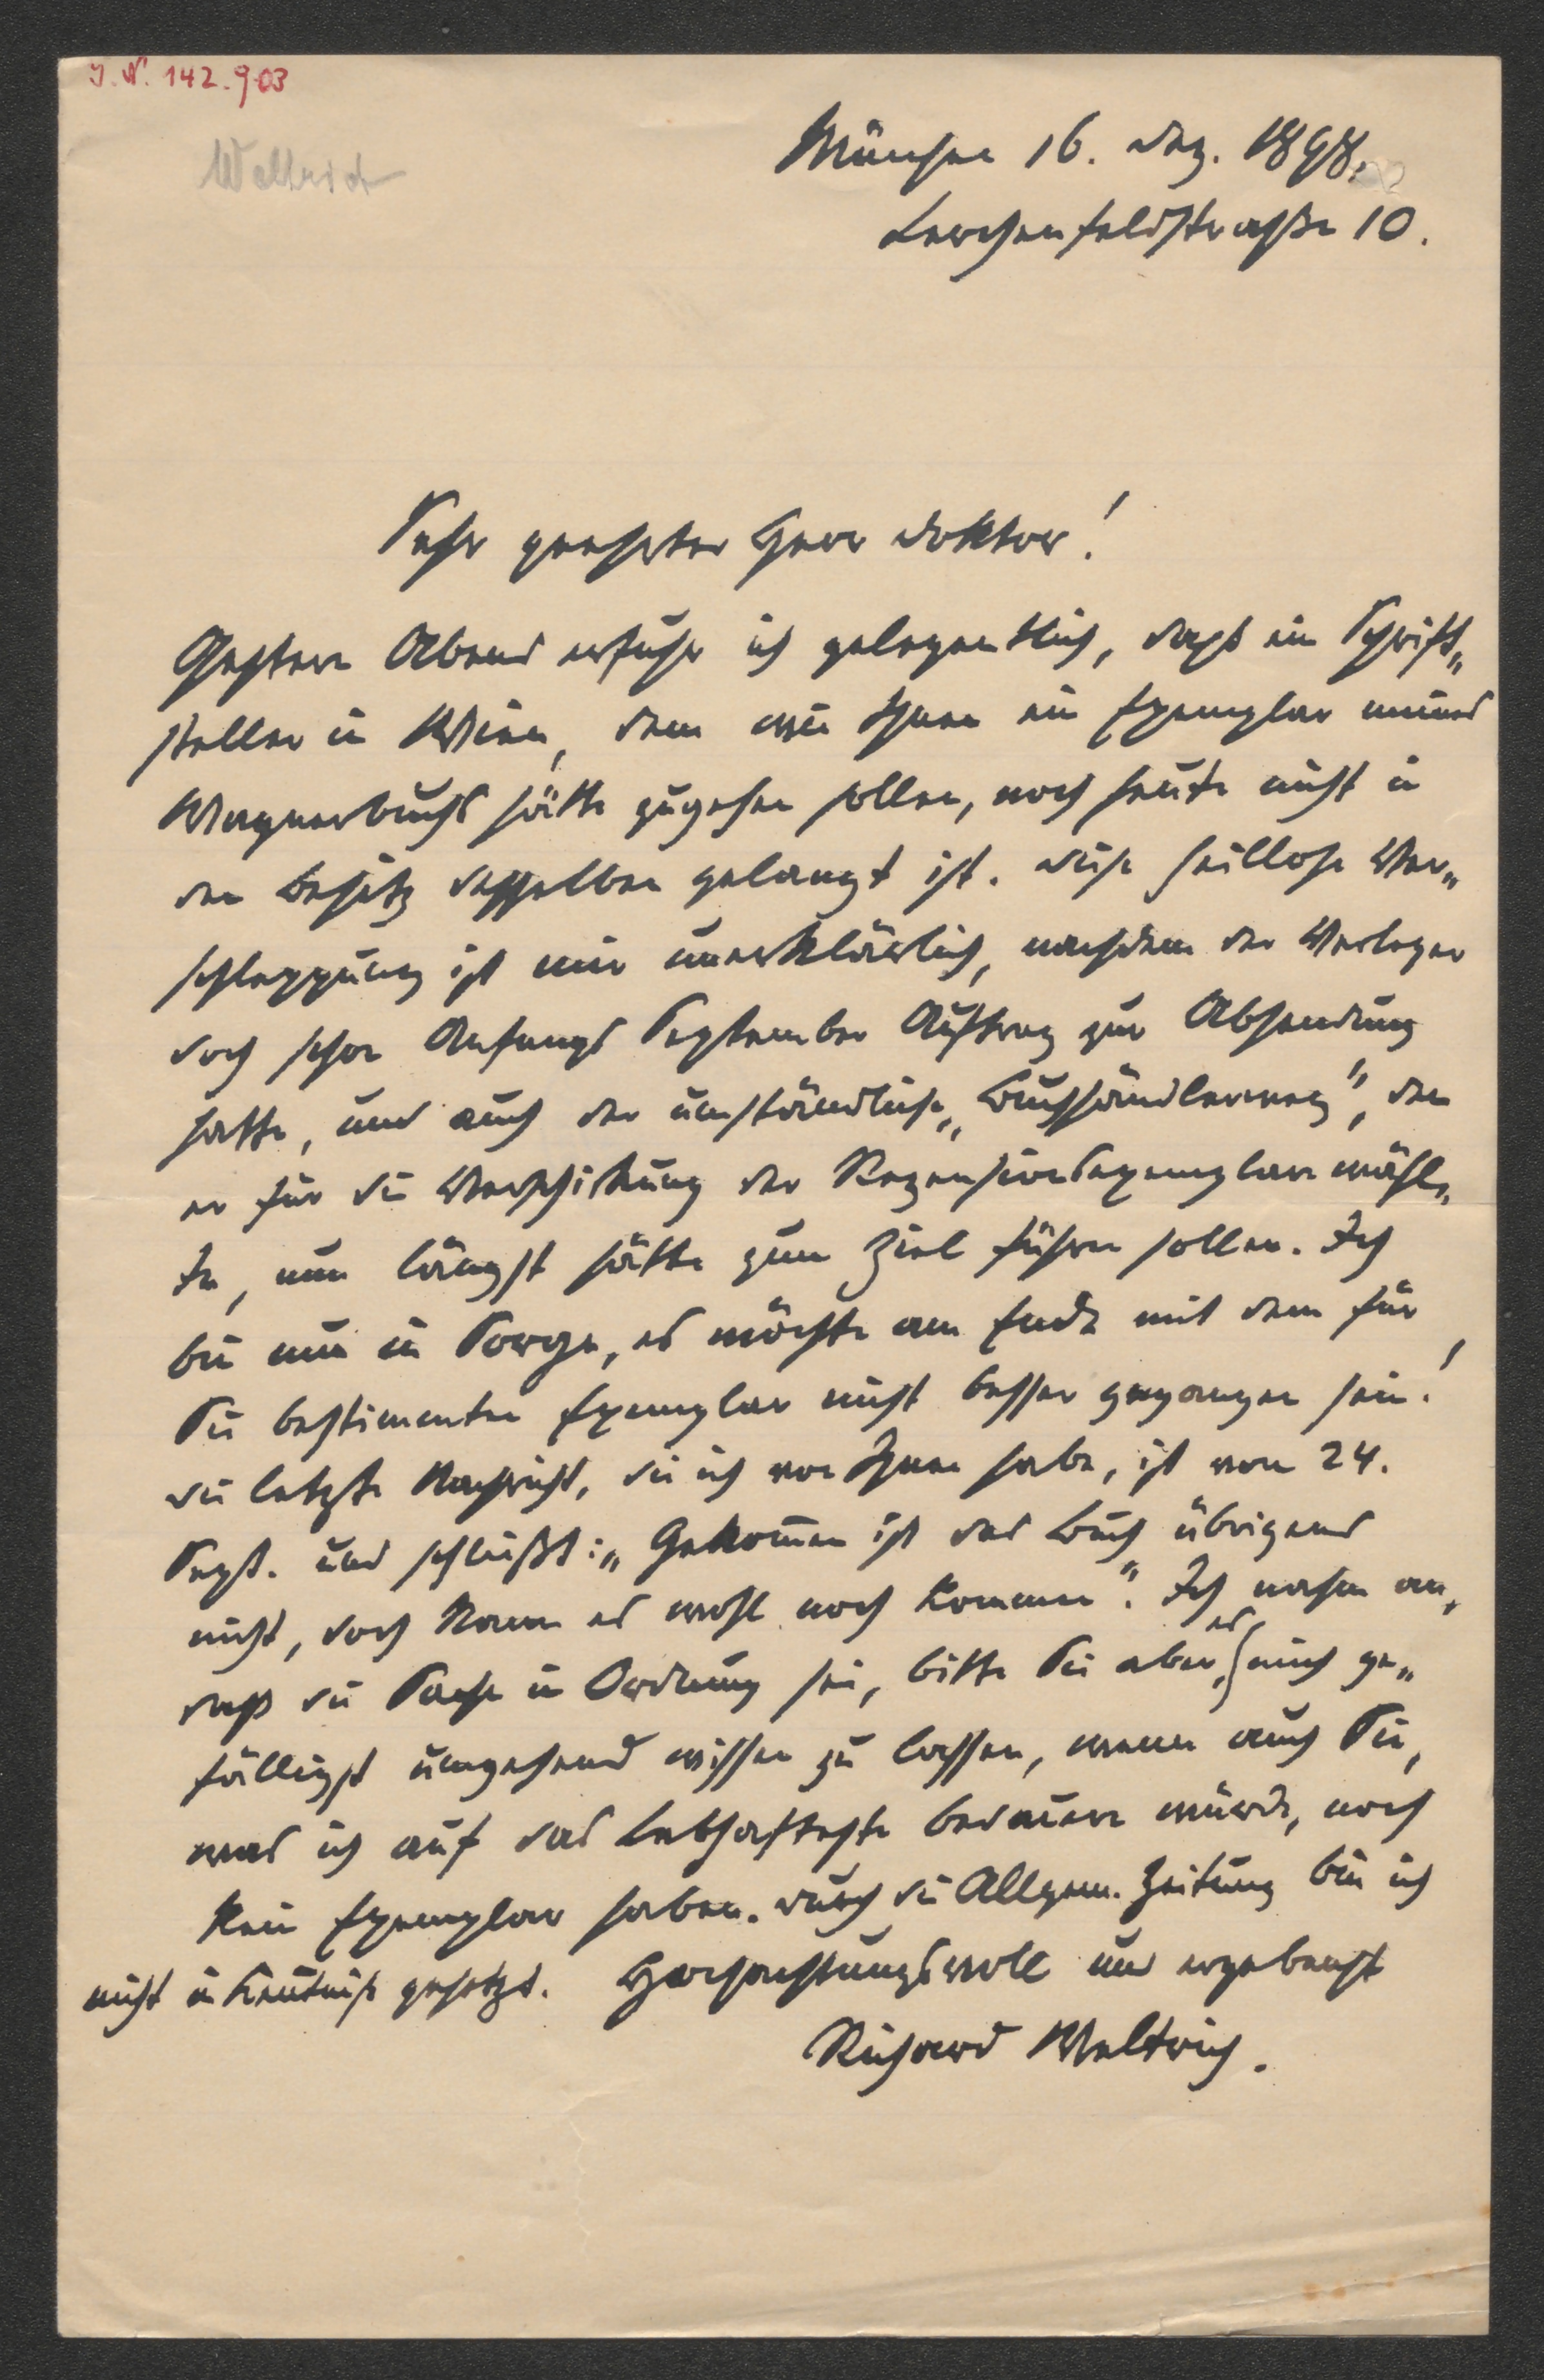 I. N. 142.903
Weltrich
München 16. Dez. 1898.
Lerchenfeldstraße 10.
Sehr geehrter Herr Doktor!
Gestern Abend erfuhr ich gelegentlich, daß ein Schrift„
steller in Wien, dem wie Ihnen ein Exemplar meines
Wagnerbuchs hätte zugehen sollen, noch heute nicht in
den Besitz desselben gelangt ist. Diese heillose Ver„
schleppung ist mir unerklärlich, nachdem der Verleger
doch schon Anfangs September Auftrag zur Absendung
hatte, und auch der umständliche „Buchhändlerweg", den
er für die Verschickung der Rezensionsexemplare wähl„
te, nun längst hätte zum Ziel führen sollen. Ich
bin nun in Sorge, es möchte am Ende mit dem für
Sie bestimmten Exemplar nicht besser gegangen sein!
Die letzte Nachricht, die ich von Ihnen habe, ist vom 24.
Sept. und schließt: „Gekom̄en ist das Buch übrigens
nicht, doch kann es wohl noch kommen". Ich nahm an,
daß die Sache in Ordnung sei, bitte Sie aber, es mich ge„
fälligst umgehend wissen zu lassen, wenn auch Sie,
was ich auf das Lebhafteste bedauern würde, noch
kein Exemplar haben. Durch die Allgem. Zeitung bin ich
nicht in Kentniß gesetzt. Hochachtungsvoll und ergebenst
Richard Weltrich.